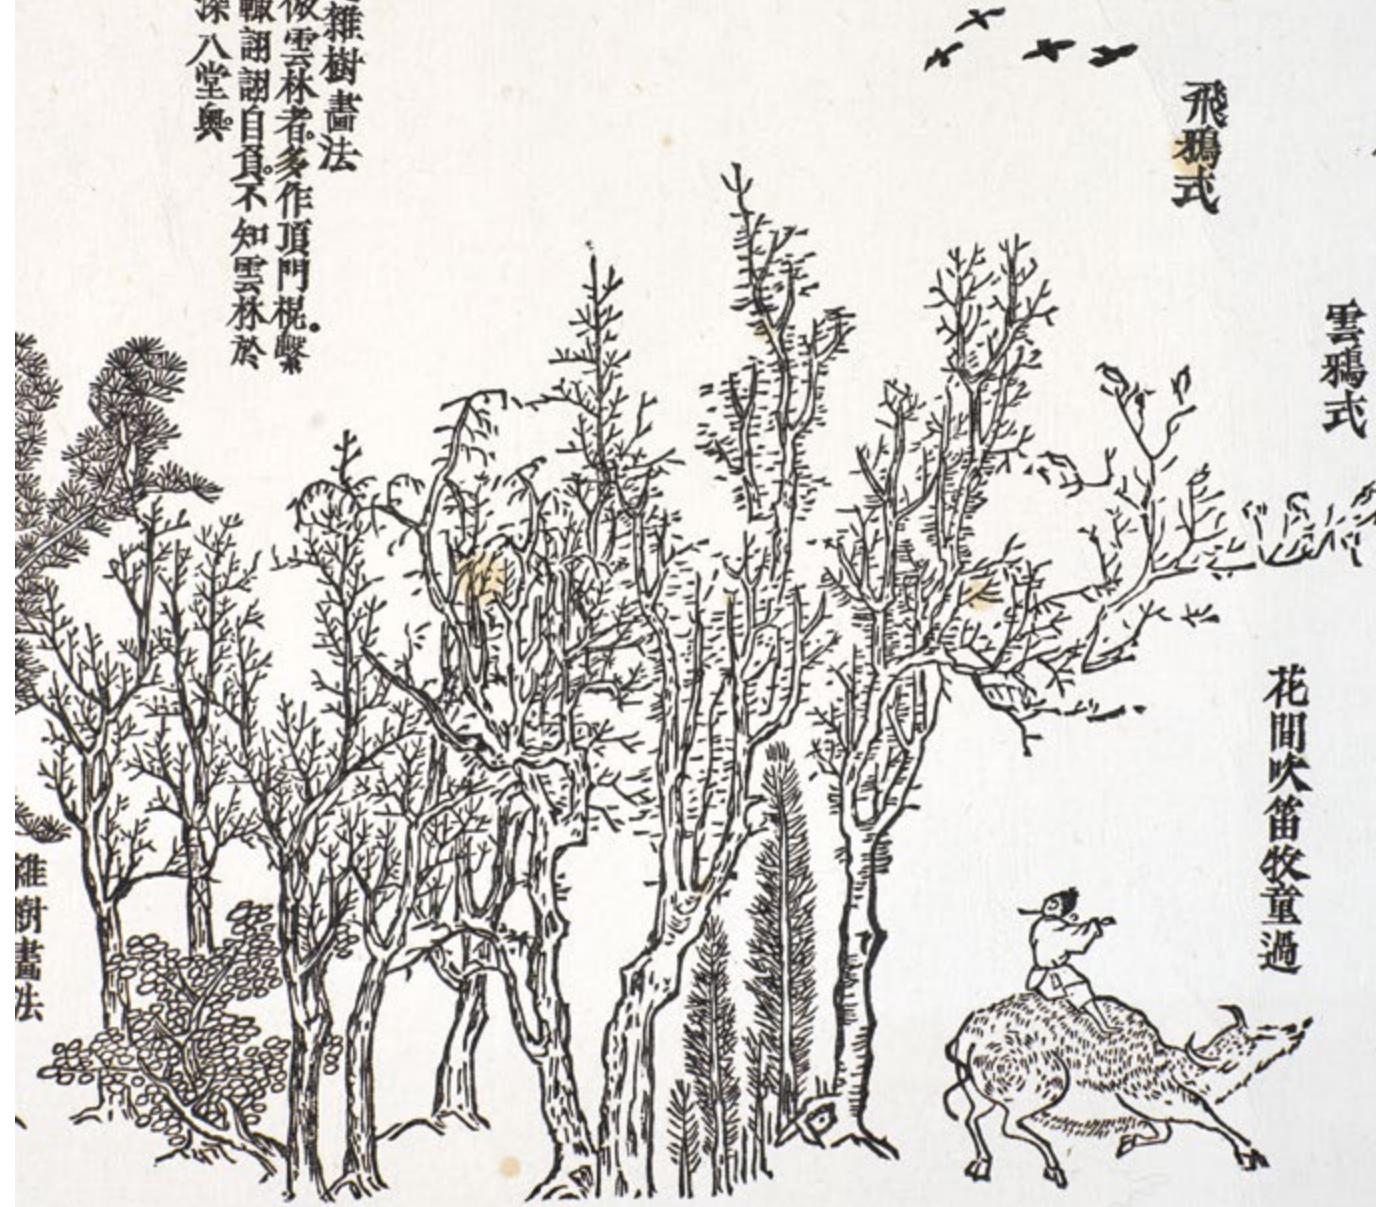 雲鴉式
飛鴉式
花間吹笛牧童過
雜樹畫法
倣雲林者。多作頂門棍。繫
輙詡詡自負。不知雲林於
深入堂奧。
雜樹畫法